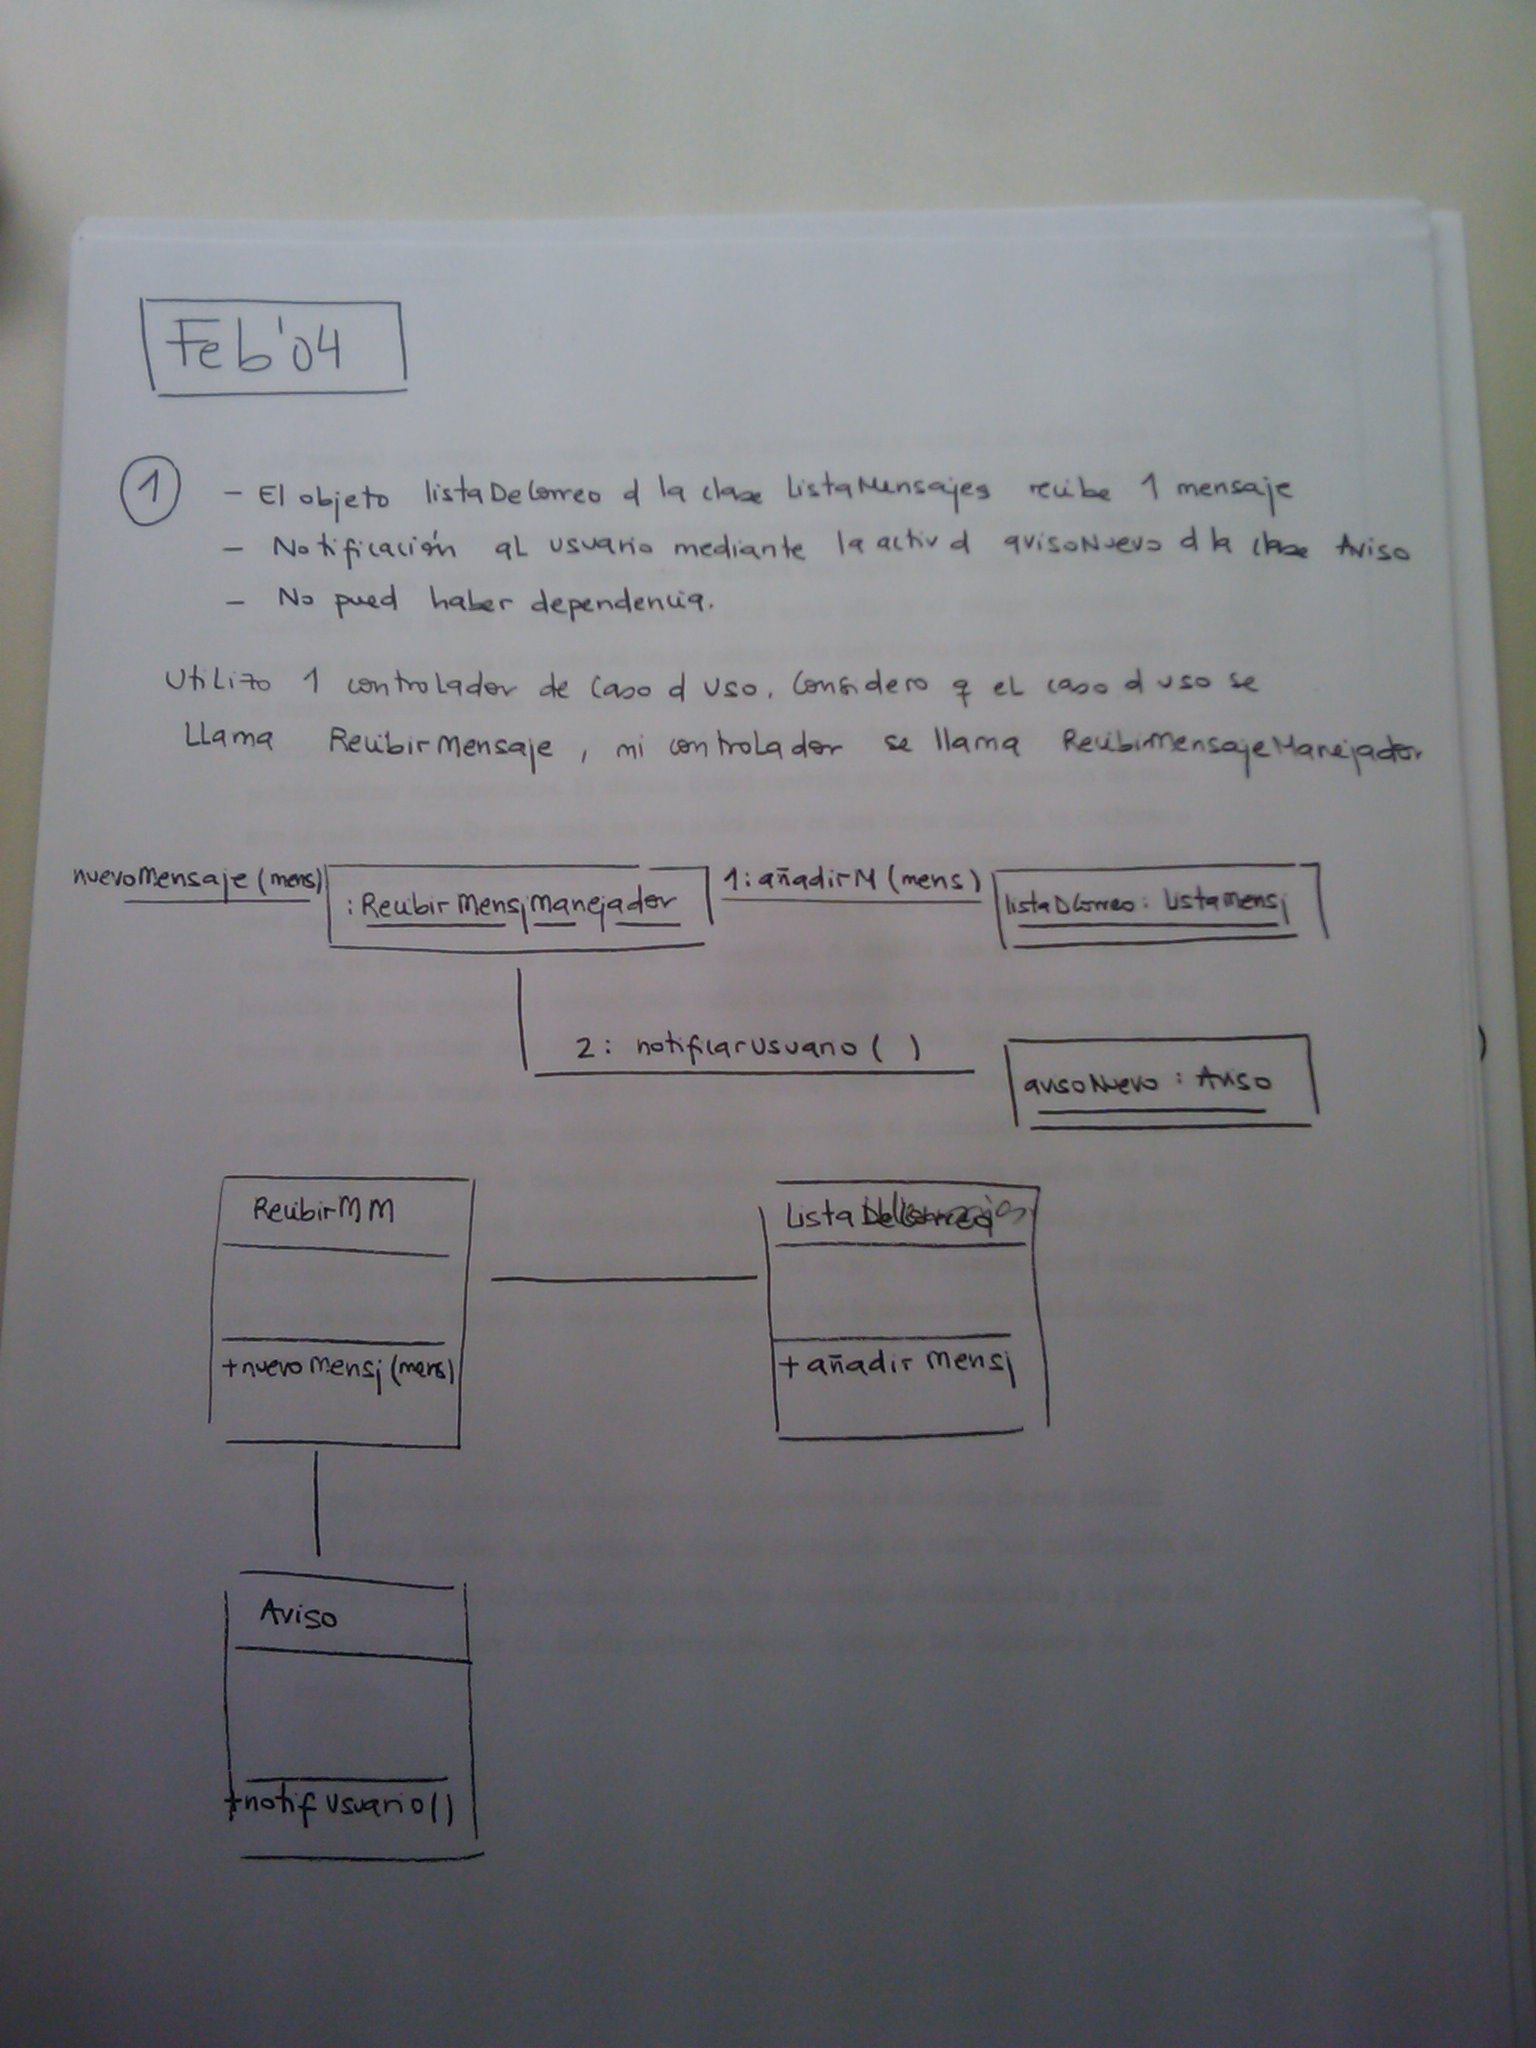 Feb'04
1 - El objeto listaDeCorreo d la clase ListaMensajes recibe 1 mensaje
- Notificación al usuario mediante la activ d avisoNuevo d la clase Aviso
- No pued haber dependencia.
Utilizo 1 controlador de caso d uso. Considero q el caso d uso se
llama RecibirMensaje, mi controlador se llama RecibirMensajeManejador
nuevoMensaje (mens) :RecibirMensjManejador 1: añadirM (mens) listaDCorreo: ListaMensj
2: notificarUsuario ( ) avisoNuevo : Aviso
RecibirMM Lista
+nuevoMensj (mens) + añadir Mensj
Aviso
+notifUsuario()